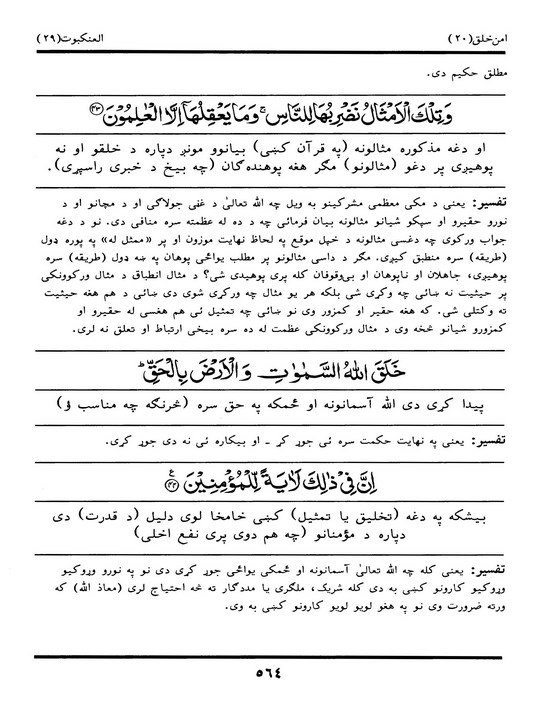 امن خلق (٢٠)
العنکبوت (٢٩)
مطلق حکیم دی.
وَتِلْكَ الْاَمْثَالُ نَضْرِبُهَا لِلنَّاسِ ۚ وَمَا يَعْقِلُهَآ اِلَّا الْعٰلِمُوْنَ ﴿۴۳﴾
او دغه مذکوره مثالونه (په قرآن کښی) بیانوو مونږ دپاره د خلقو او نه
پوهیږی پر دغو (مثالونو) مګر هغه پوهنده‌ګان (چه بیخ د خبری راسپړی).
تفسیر: یعنی د مکی معظمی مشرکینو به ویل چه الله تعالیٰ د غڼی جولاګی او د مچانو او د
نورو حقیرو او سپکو شیانو مثالونه بیان فرمائی چه د ده له عظمته سره منافی دی. نو د دغه
جواب ورکوی چه دغسی مثالونه د خپل موقع په لحاظ نهایت موزون او پر «ممثل له» په پوره ډول
(طریقه) سره منطبق کیږی. مګر د داسی مثالونو پر مطلب یوائځی پوهان په ښه ډول (طریقه) سره
پوهیږی، جاهلان او ناپوهان او بی‌وقوفان کله پری پوهیدی شی؟ د مثال انطباق د مثال ورکوونکی
پر حیثیت نه ښائی چه وکړی شی بلکه هر یو مثال چه ورکړی شوی دی ښائی د هم هغه حیثیت
ته وکتلی شی. که هغه حقیر او کمزور وی نو ښائی چه تمثیل ئی هم هغسی له حقیرو او
کمزورو شیانو څخه وی د مثال ورکوونکی عظمت له ده سره بیخی ارتباط او تعلق نه لری.
خَلَقَ اللّٰهُ السَّمٰوٰتِ وَالْاَرْضَ بِالْحَقِّ ؕ
پیدا کړی دی الله آسمانونه او ځمکه په حق سره (څرنګه چه مناسب ؤ)
تفسیر: یعنی په نهایت حکمت سره ئی جوړ کړ ـ او بیکاره ئی نه دی جوړ کړی.
اِنَّ فِيْ ذٰلِكَ لَاٰيَةً لِّلْمُؤْمِنِيْنَ ﴿۴۴﴾ ع
بیشکه په دغه (تخلیق یا تمثیل) کښی خامخا لوی دلیل (د قدرت) دی
دپاره د مؤمنانو (چه هم دوی پری نفع اخلی)
تفسیر: یعنی کله چه الله تعالیٰ آسمانونه او ځمکی یوائځی جوړ کړی دی نو په نورو وړوکیو
وړوکیو کارونو کښی به دی کله شریک، ملګری یا مددګار ته څه احتیاج لری (معاذ الله) که
ورته ضرورت وی نو په هغو لویو لویو کارونو کښی به وی.
٥٦٤